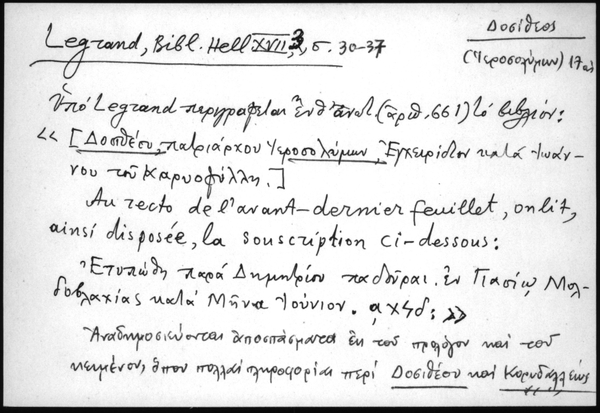 Δοσίθεος
(Ἱεροσολύμων) 17 αἰ
Legrand, Bibl. Hell XVII, 3, σ. 30-37
Ὑπό Legrand περιγράφεται ἐνθ' ἀνωτ. (ἀριθ. 661) τό βιβλίον:
« [Δοσιθέου, πατριάρχου Ἱεροσολύμων, Ἐγχειρίδιον κατά Ἰωάν-
νου τοῦ Καρυοφύλλη.]
Au recto de l'avant-dernier feuillet, on lit,
ainsi disposée, la souscription ci-dessous:
Ἐτυπώθη παρά Δημητρίου παδοῦραι. ἐν Γιασίῳ Μολ-
δοβλαχίας κατά Μῆνα Ἰούνιον. αχϟδ: »
Ἀναδημοσιεύονται ἀποσπάσματα ἐκ τοῦ προλόγου καί τοῦ
κειμένου, ὅπου πολλαί πληροφορίαι περί Δοσιθέου καί Κορυδαλλέως